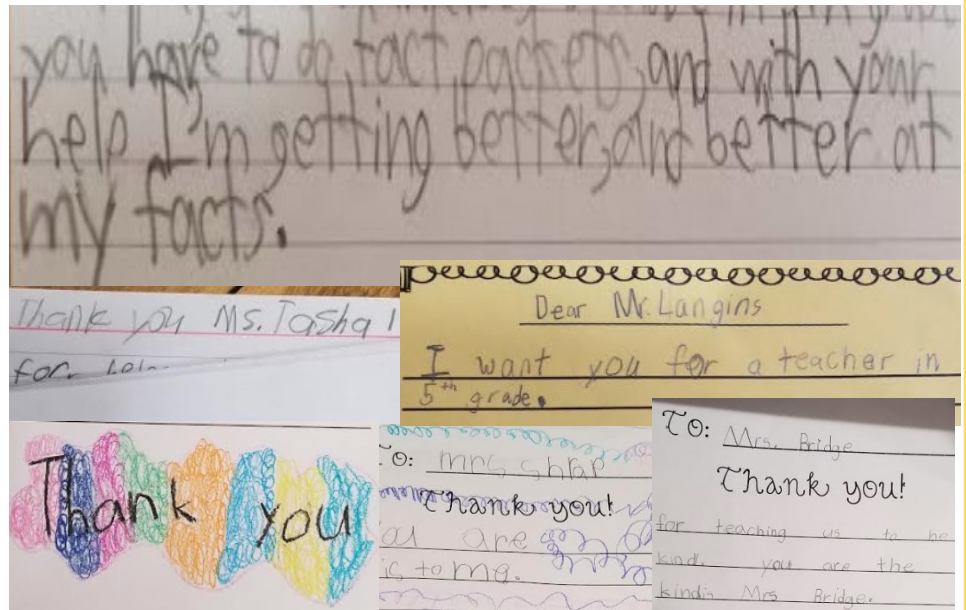 you have to do fact packets, and with your
help I'm getting better, and better at
my facts.
Thank you Ms. Tasha
for
Dear Mr. Langins
I want you for a teacher in
5th grade.
Thank you
TO: mrs shrap
Thank you!
you are
is to me.
TO: Mrs. Bridge
Thank you!
for teaching us to be
kind. you are the
kindis Mrs Bridge.